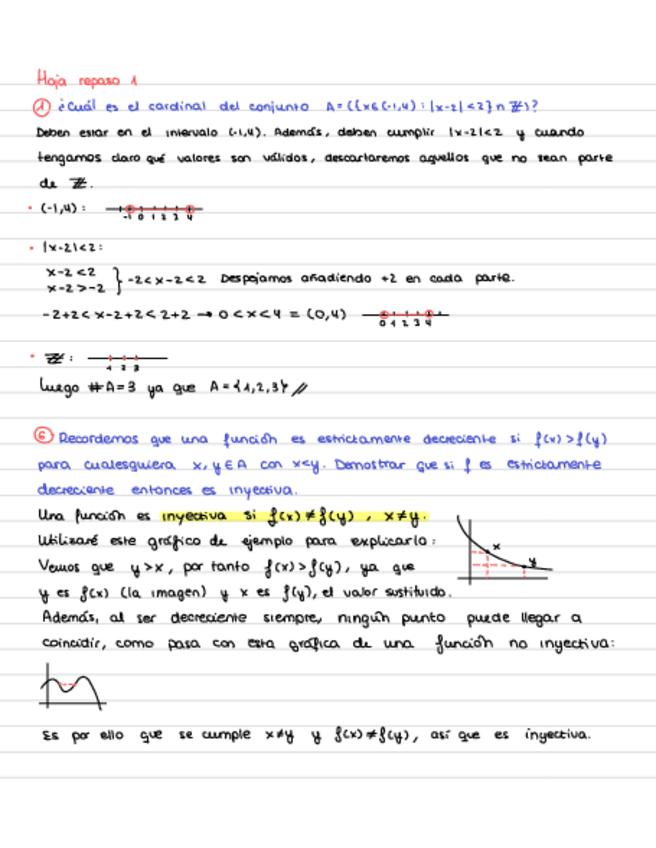 Hoja repaso 1
① ¿Cuál es el cardinal del conjunto A=({x∈(-1,4) : |x-2|<2} ∩ ℤ)?
Deben estar en el intervalo (-1,4). Además, deben cumplir |x-2|<2 y cuando
tengamos claro qué valores son válidos, descartaremos aquellos que no sean parte
de ℤ.
· (-1,4) :
-1 0 1 2 3 4
· |x-2|<2 :
x-2<2
x-2>-2 } -2<x-2<2 Despejamos añadiendo +2 en cada parte.
-2+2<x-2+2<2+2 → 0<x<4 = (0,4)
0 1 2 3 4
· ℤ :
1 2 3
Luego #A=3 ya que A={1,2,3} //
⑥ Recordemos que una función es estrictamente decreciente si f(x)>f(y)
para cualesquiera x,y∈A con x<y. Demostrar que si f es estrictamente
decreciente entonces es inyectiva.
Una función es inyectiva si f(x)≠f(y) , x≠y.
Utilizaré este gráfico de ejemplo para explicarlo :
x
y
Vemos que y>x, por tanto f(x)>f(y), ya que
y es f(x) (la imagen) y x es f(y), el valor sustituido.
Además, al ser decreciente siempre, ningún punto puede llegar a
coincidir, como pasa con esta gráfica de una función no inyectiva:
Es por ello que se cumple x≠y y f(x)≠f(y), así que es inyectiva.